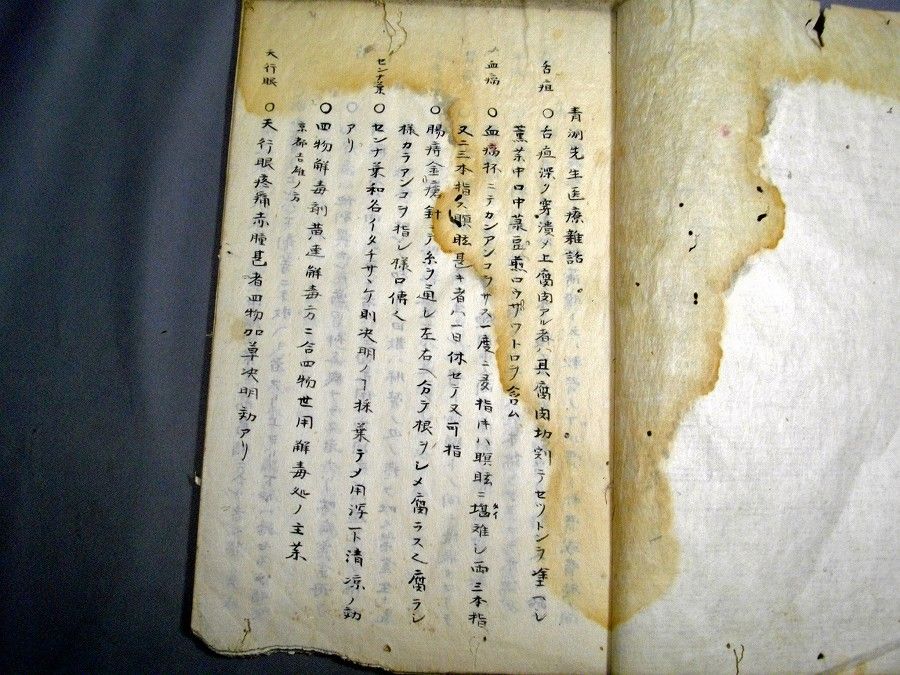 青洲先生医療雑話
舌疽
○舌疽深ク穿潰メ上腐肉アル者ハ其腐肉切割テセツトンヲ塗ヘシ
薫茶中口中菉豆煎ロウザウトロヲ含ム
血痛
○血痛杯ニテカンアンコヲサス一度ニ二度指キハ瞑眩ニ堪難シ両三本指
又二三本指ス瞑眩甚キ者ハ一日休セテ又可指
○腸痔金瘡針ニテ糸ヲ通シ左右ヘ分テ根ヲシメ腐ラスベシ腐ラン
様カラアンコヲ指シ様口傳
センナ葉
○センナ葉和名イタチサヽケ則决明ノ採葉テメ用瀉下清凉ノ効
アリ
○四物解毒剤黄連解毒方ニ合四物世用解毒処ノ主茶
京都吉雄ノ方
天行眼
○天行眼疼痛赤腫甚者四物加草决明効アリ